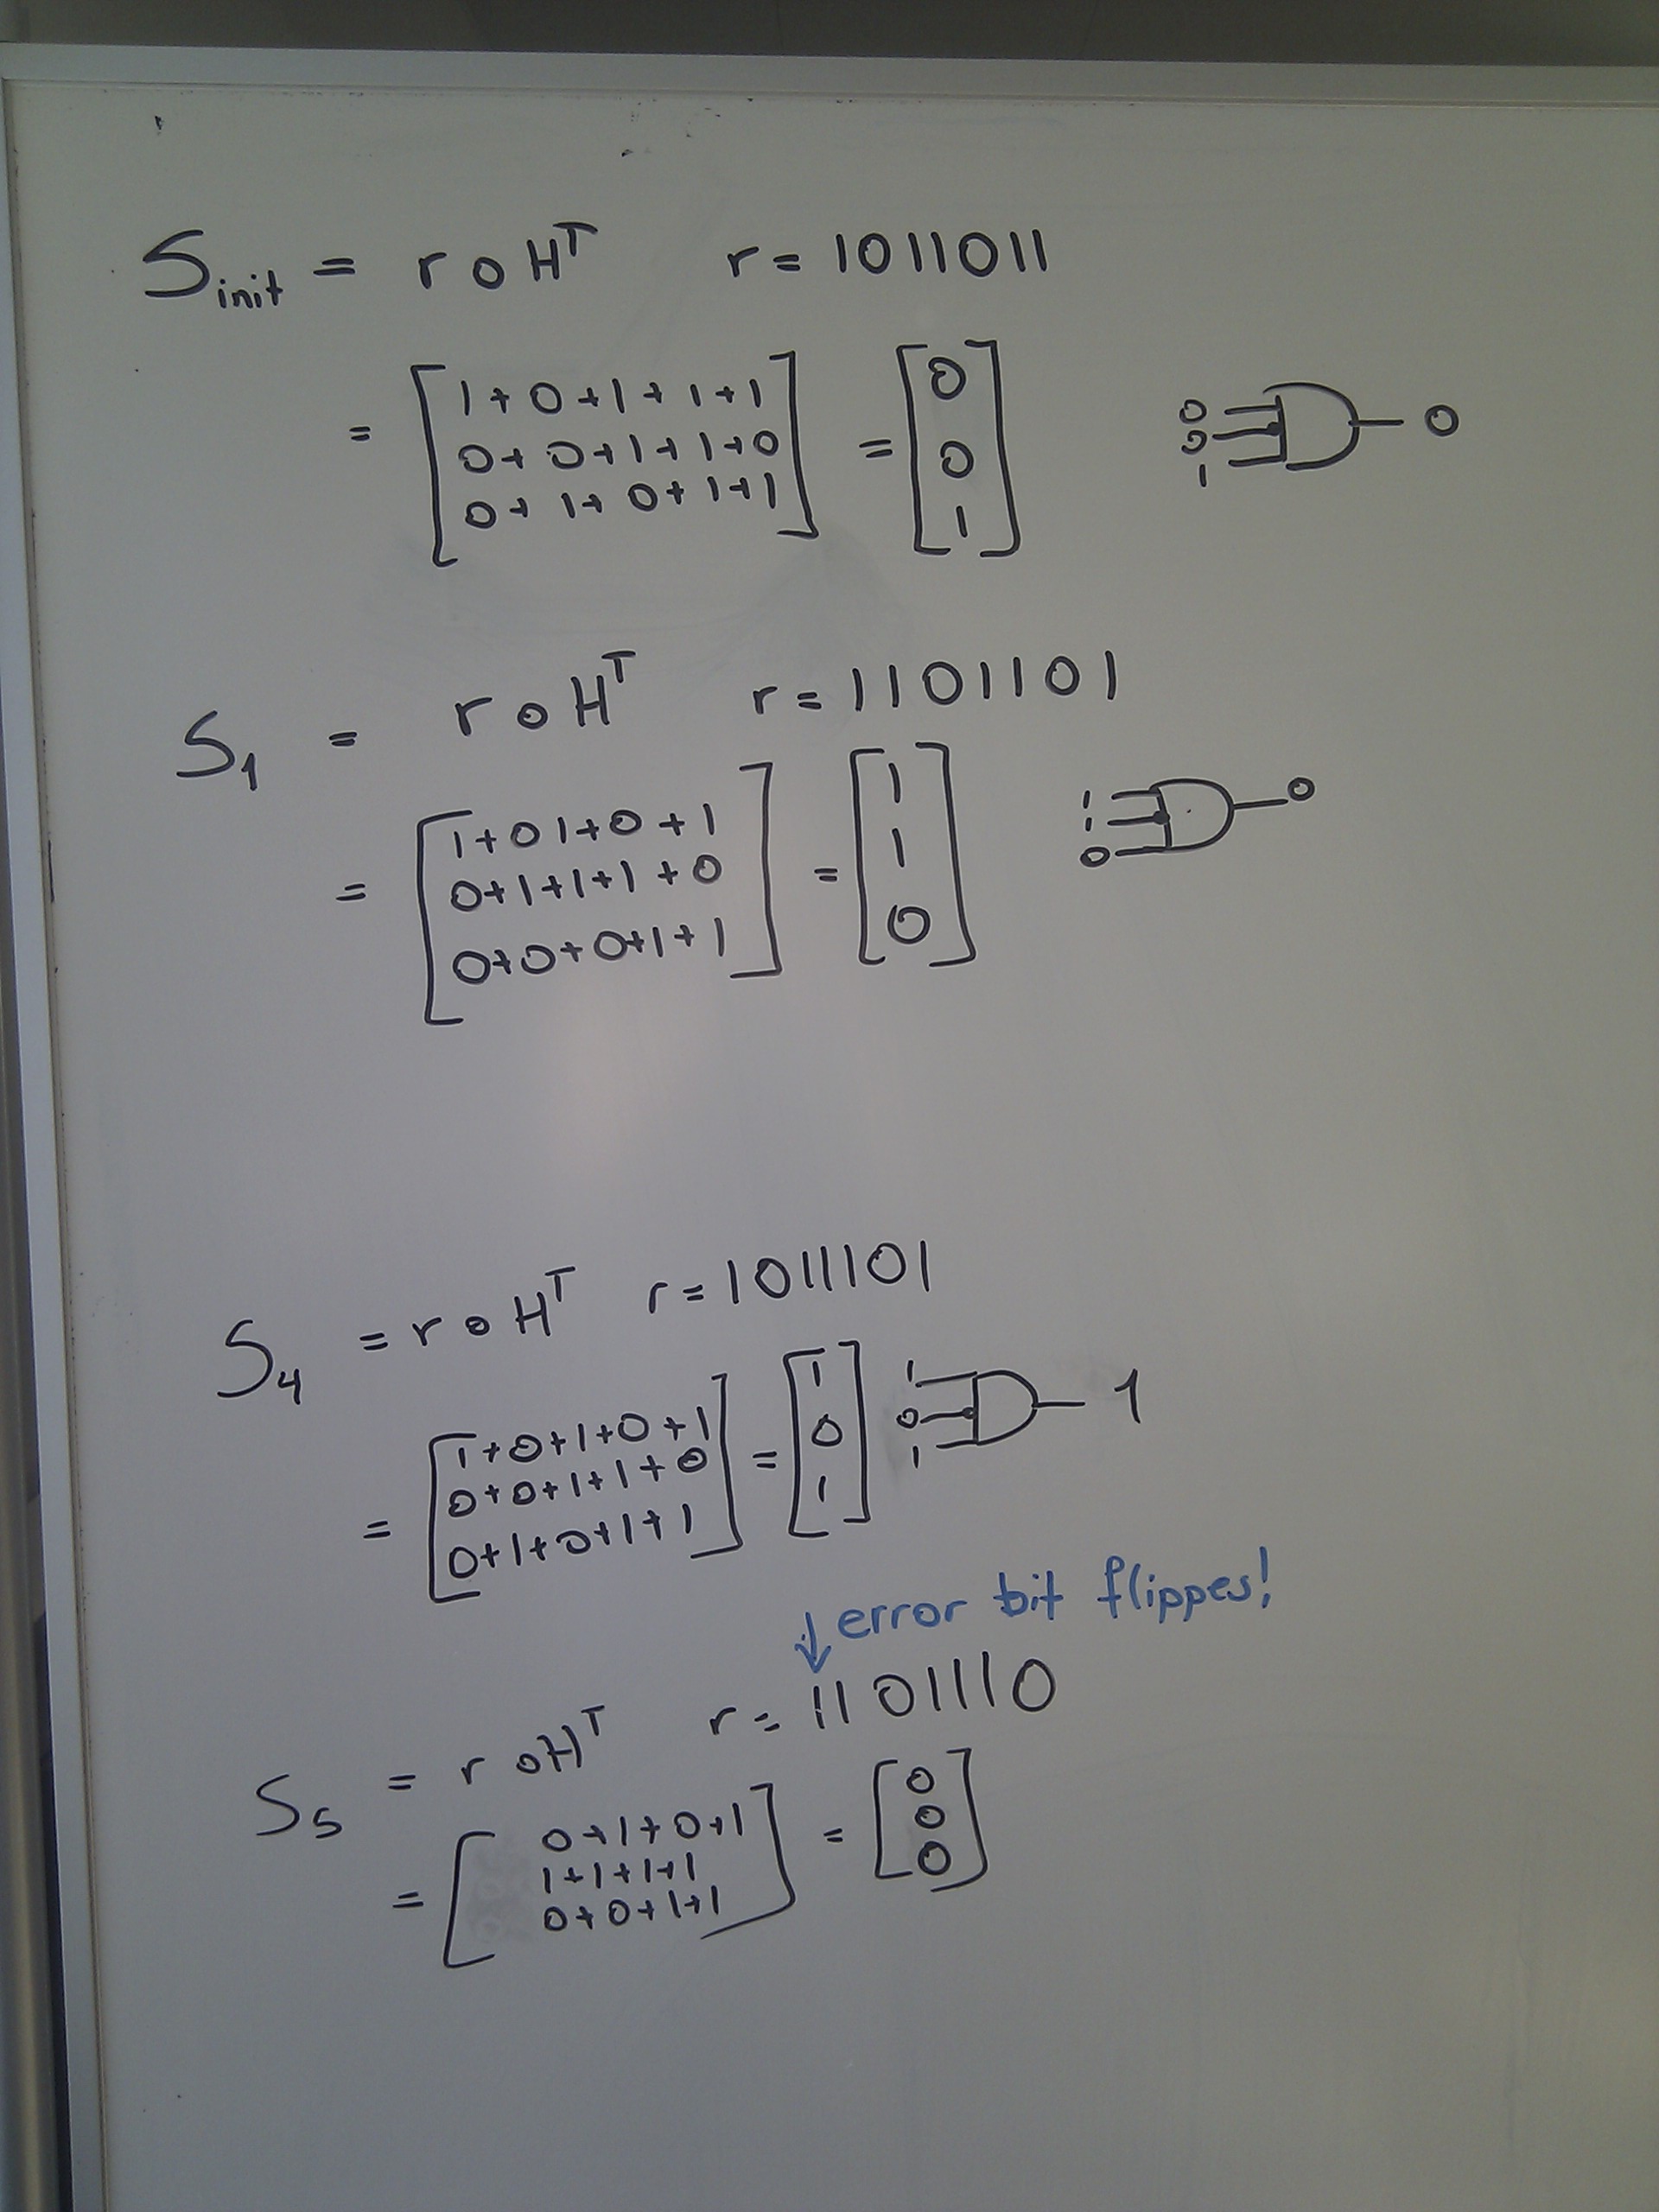 S init = r o H^T r = 1011011
= [ 1+0+1+1+1 ] = [ 0 ] 0
0+0+1+1+0 0 0 0
0+1+0+1+1 1 1
S1 = r o H^T r = 1101101
= [ 1+0 1+0+1 ] = [ 1 ] 1 0
0+1+1+1+0 1 1
0+0+0+1+1 0 0
S4 = r o H^T r = 1011101
= [ 1+0+1+0+1 ] = [ 1 ] 1
0+0+1+1+0 0 0 1
0+1+0+1+1 1 1
↓ error bit flippes!
S5 = r o H^T r = 1101110
= [ 0+1+0+1 ] = [ 0 ]
1+1+1+1 0
0+0+1+1 0